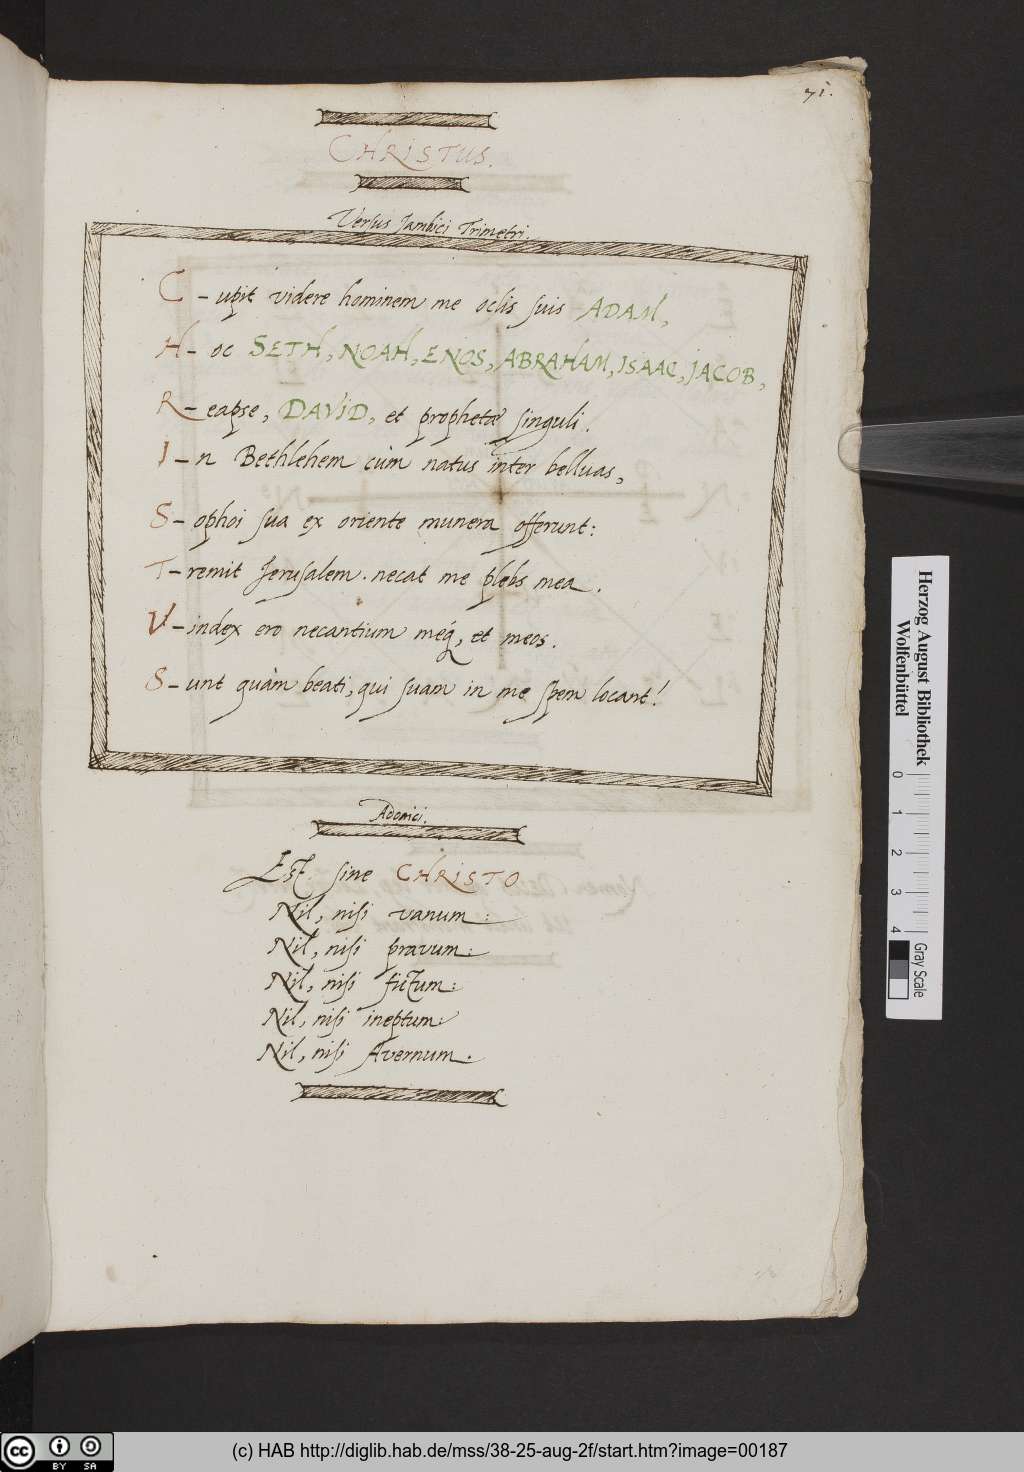 71.
CHRISTUS.
Versus Jambici Trimetri.
C - upit videre hominem me oclis suis ADAM,
H - oc SETH, NOAH, ENOS, ABRAHAM, ISAAC, JACOB,
R - eapse, DAVID, et prophetæ singuli.
I - n Bethlehem cùm natus inter belluas,
S - ophoi sua ex oriente munera offerunt:
T - remit Jerusalem. necat me plebs mea.
V - index ero necantium méq, et meos.
S - unt quàm beati, qui suam in me spem locant!
Adonici.
Est sine CHRISTO
Nil, nisi vanum:
Nil, nisi pravum:
Nil, nisi fictum:
Nil, nisi ineptum:
Nil, nisi Avernum.
Herzog August Bibliothek
Wolfenbüttel
0 1 2 3 4
Gray Scale
cc BY SA
(c) HAB http://diglib.hab.de/mss/38-25-aug-2f/start.htm?image=00187